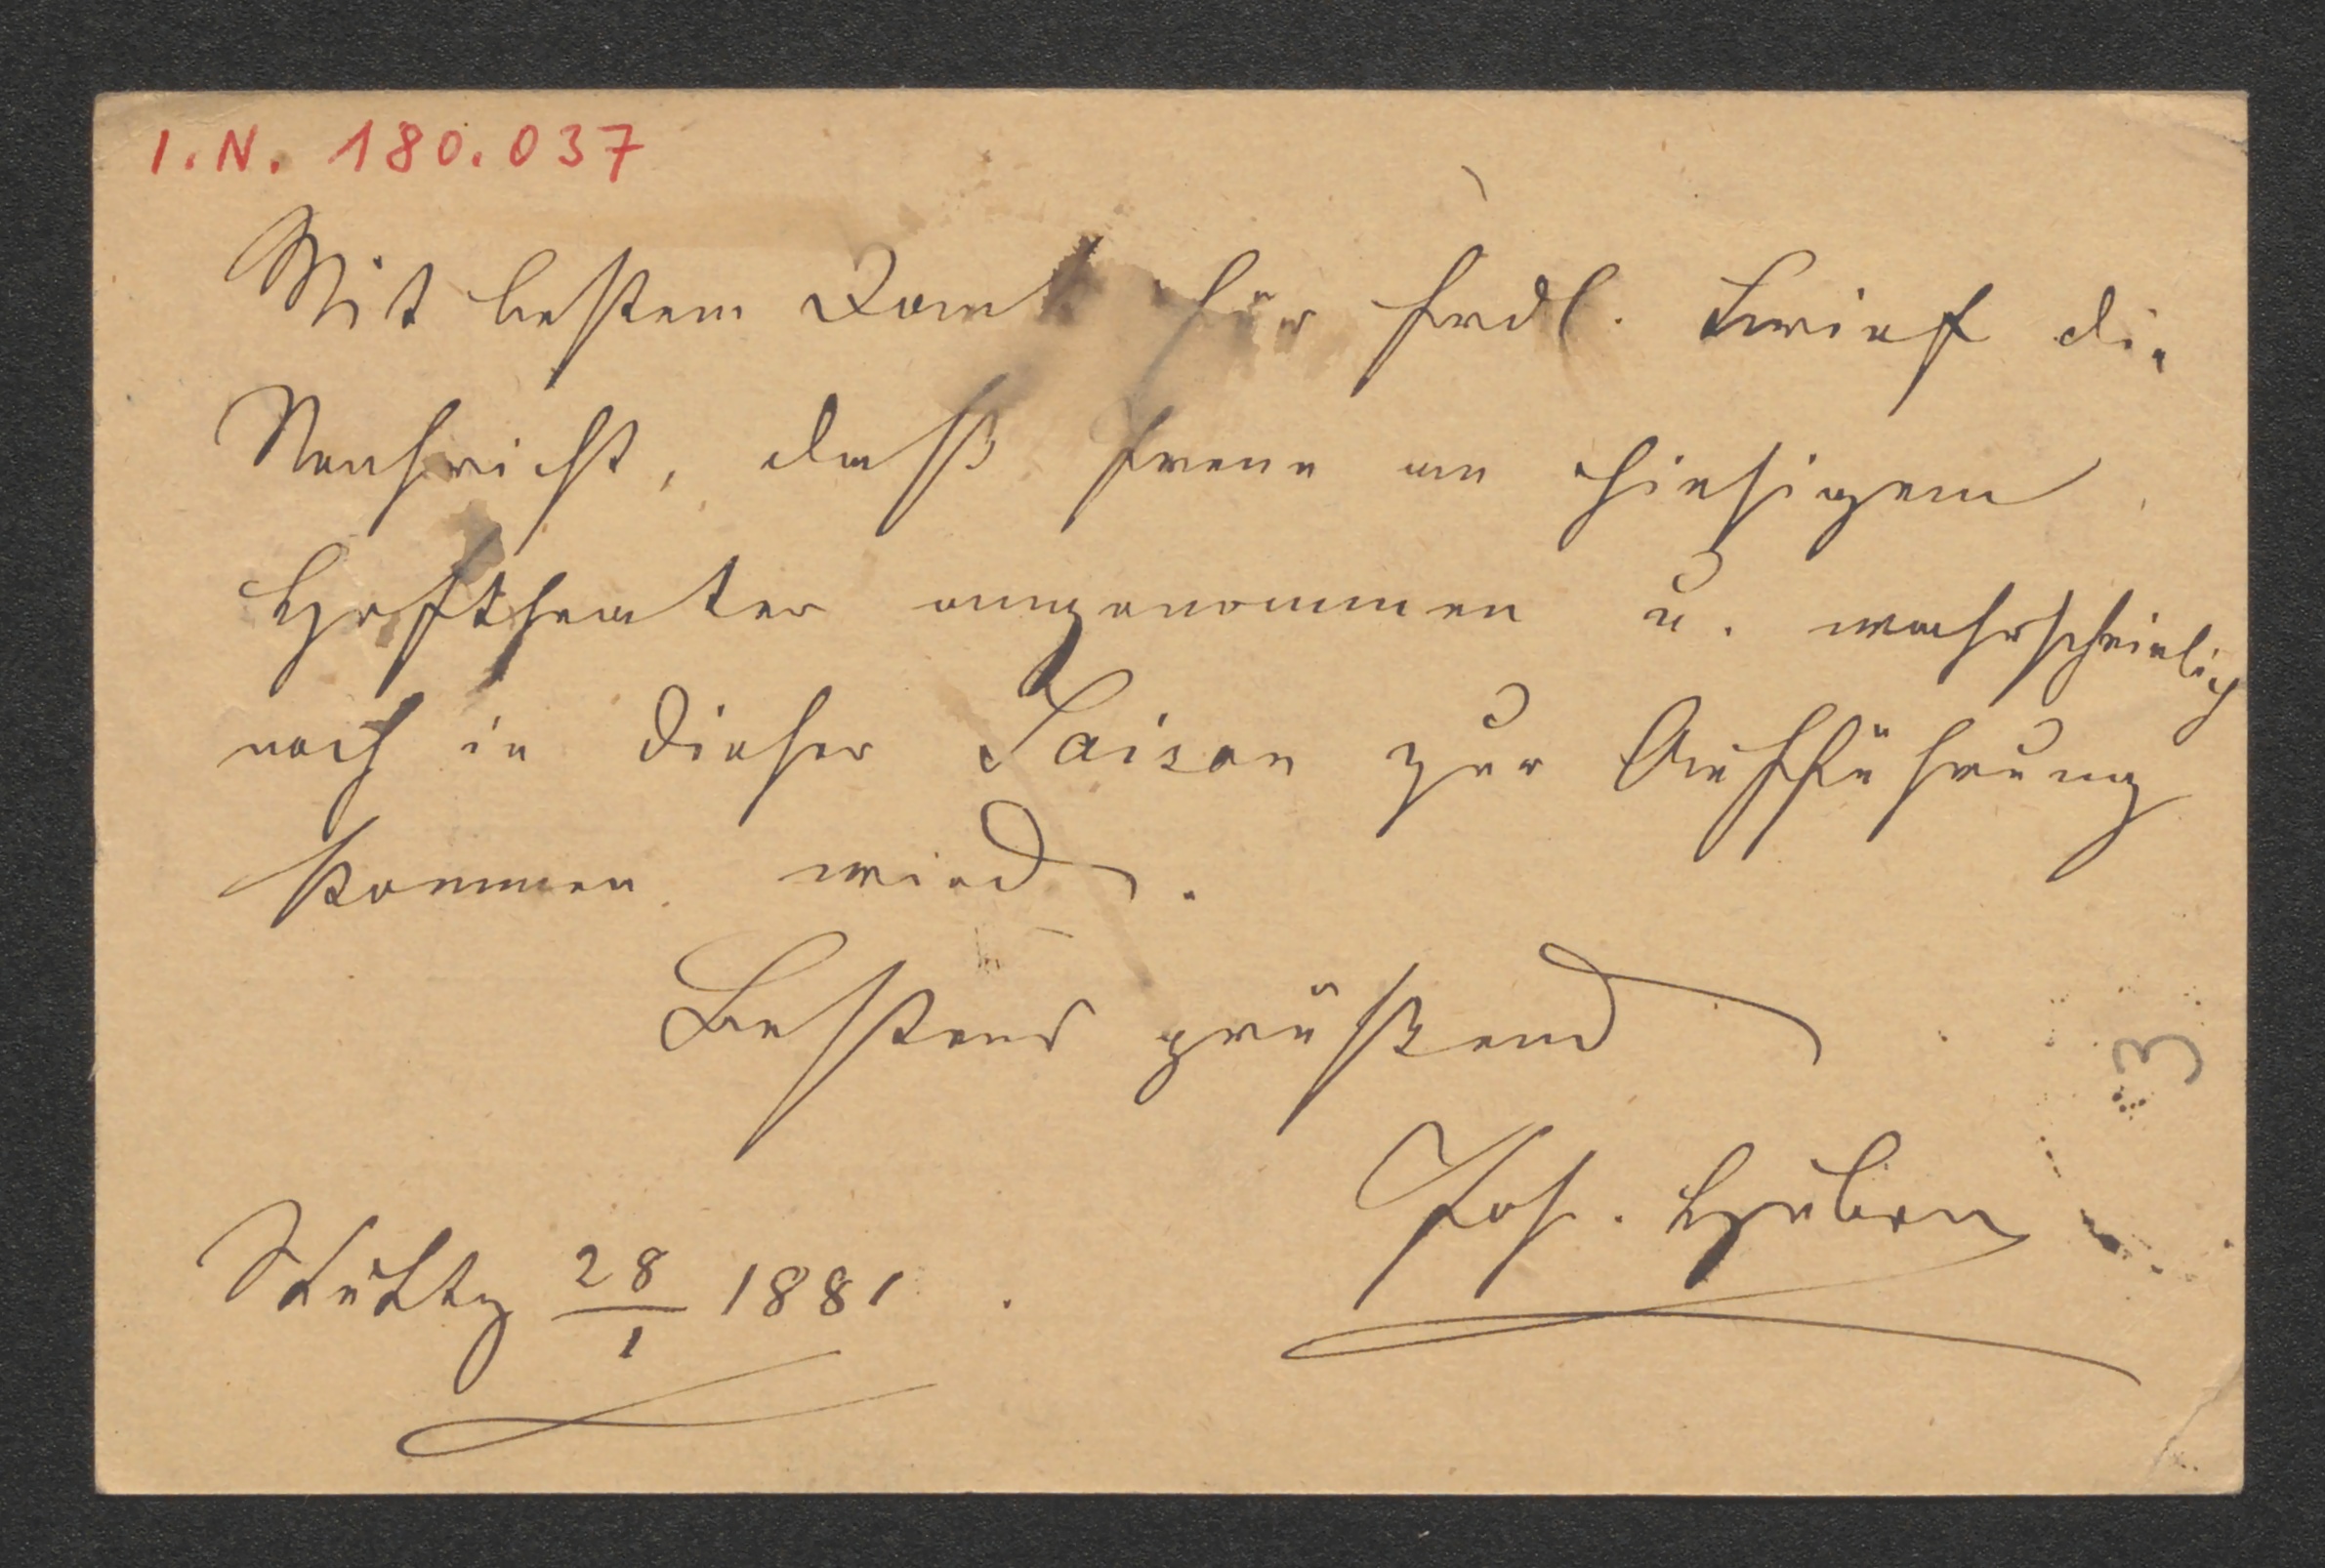 I.N. 180.037
Mit bestem Dank für frdl. Brief die
Nachricht, daß Irene am hiesigem
Hoftheater angenommen u. wahrscheinlich
noch in dieser Saison zur Aufführung
kommen wird.
Bestens grüßend
Jos. Huber
Stuttg 28/1 1881.
3